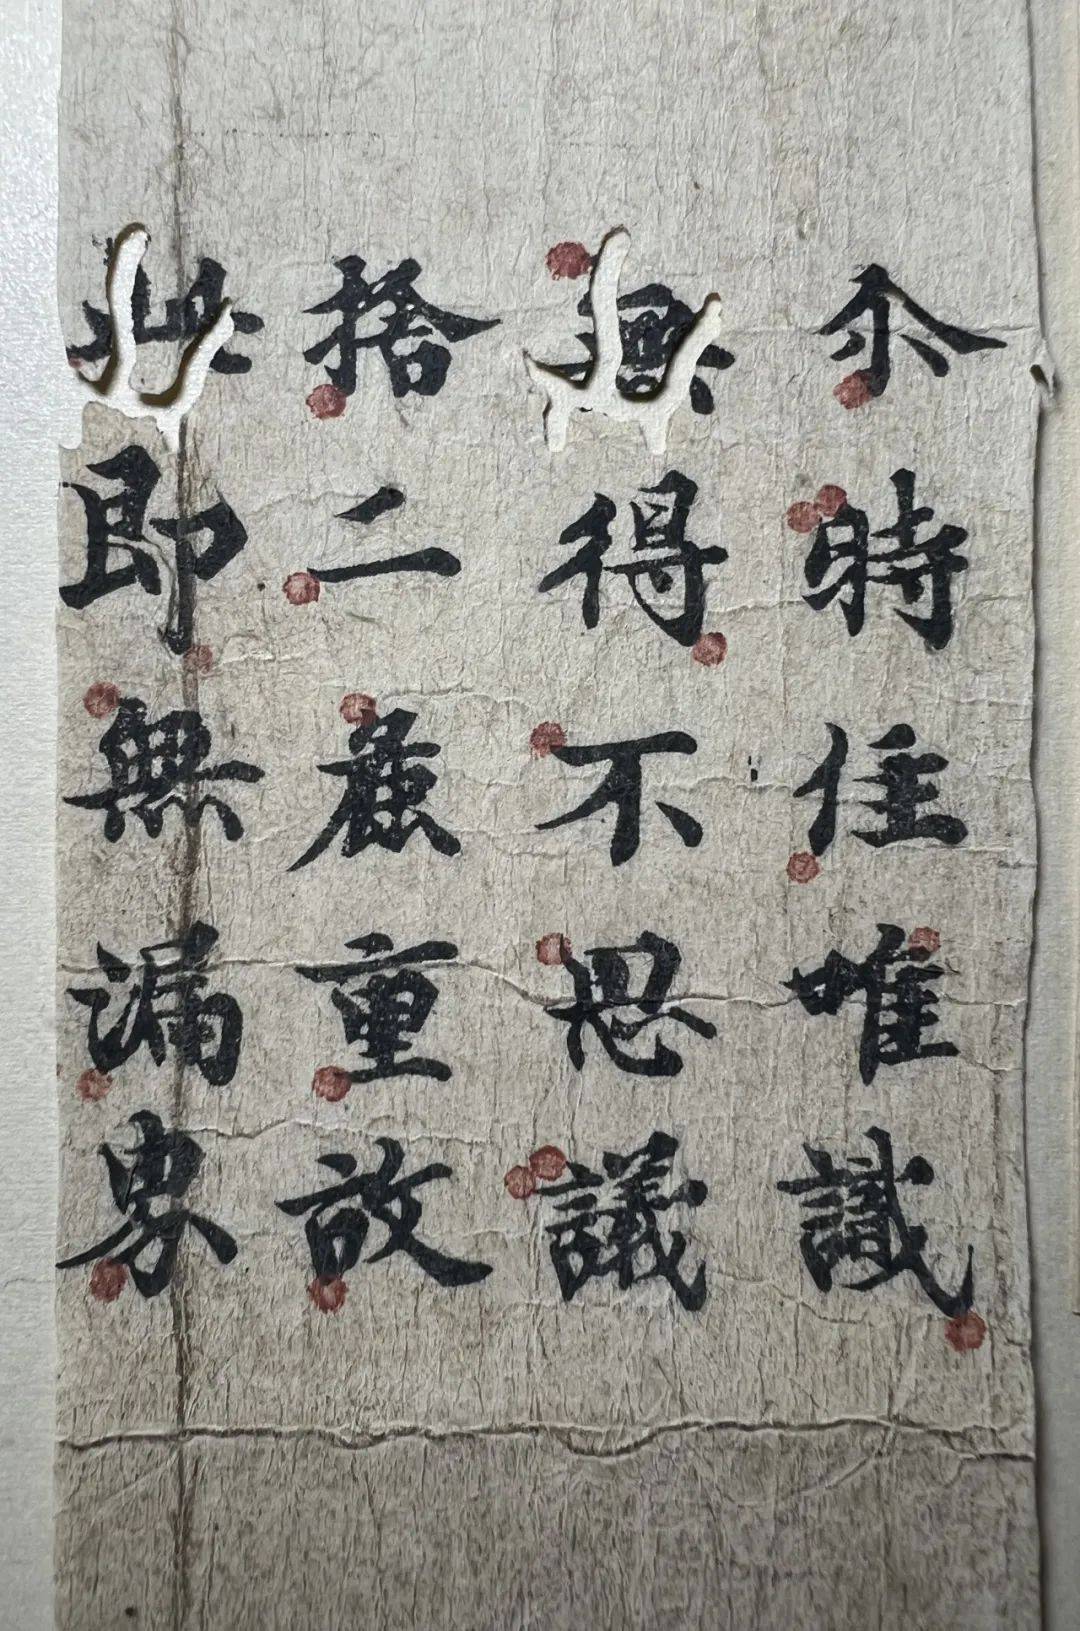 尒時住唯識
無得不思議
捨二麁重故
此即無漏界